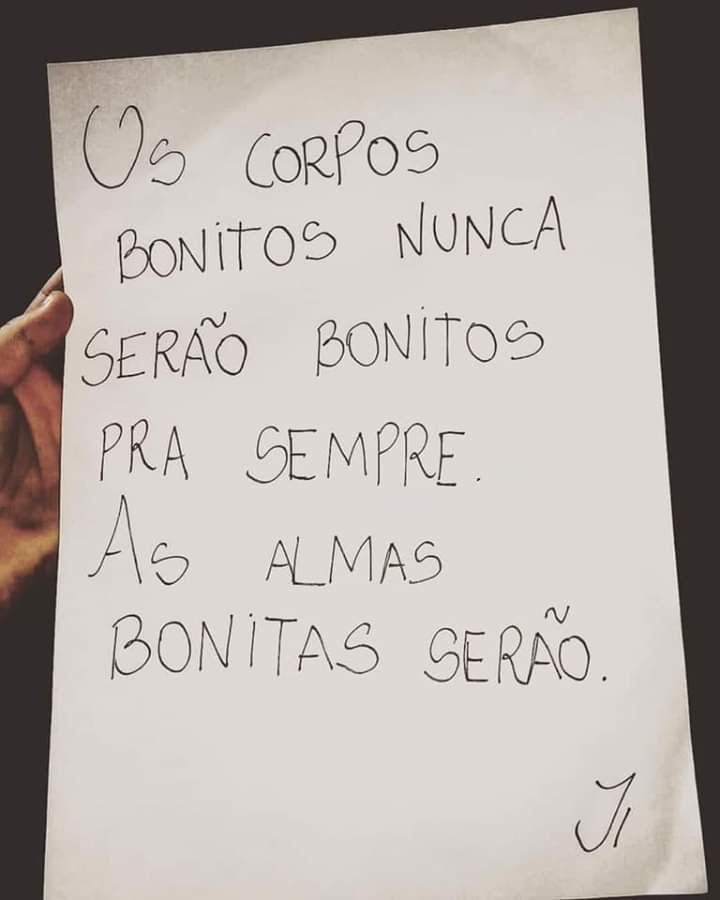 Os CORPOS
BONITOS NUNCA
SERÃO BONITOS
PRA SEMPRE.
As ALMAS
BONITAS SERÃO.